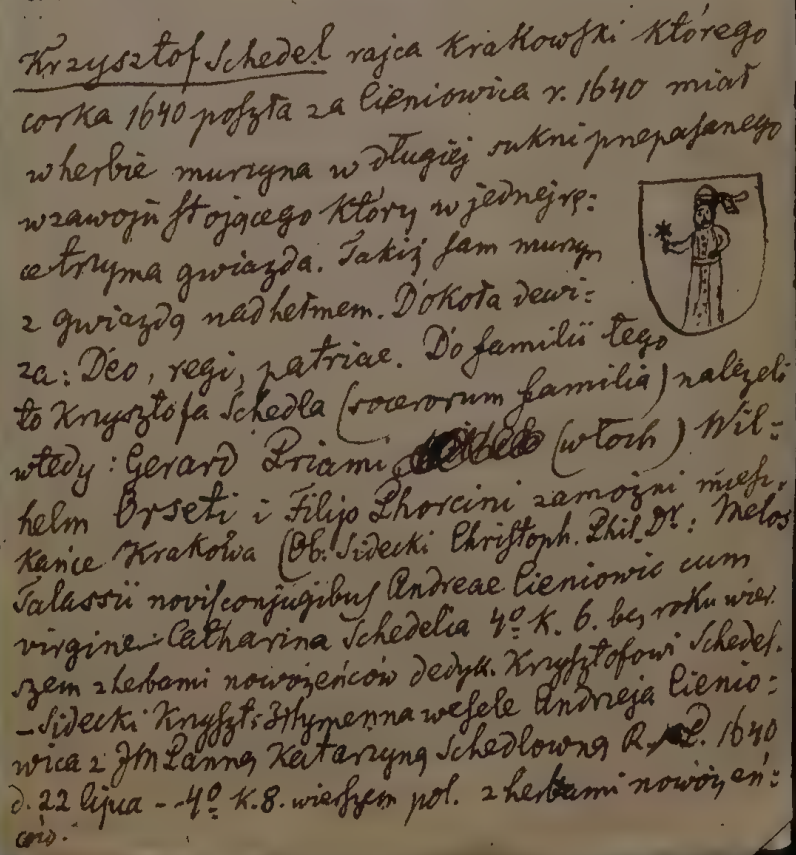 Krzysztof Schedel rajca Krakowski którego
corka 1640 poszła za Cieniowica r. 1640 miał
w herbie murzyna w długiéj sukni przepasanego
w zawoju stojącego który w jednej rę:
ce trzyma gwiazda. Takiż sam murzyn
z gwiazdą nad hełmem. Dokoła dewi:
za: Deo, regi, patriae. Do familii tego
to Krzysztofa Schedla (socerorum familia) należeli
wtedy: Gerard Priami (włoch) Wil:
helm Orseti i Filip Phorcini zamożni miesz.
kańce Krakowa (Ob. Sidecki Christoph. Phil. Dr.: Melos
Talassii novis conjugibus Andreae Cieniowic cum
virgine Catharina Schedelia 4º K. 6. bez roku wier.
szem z herbami nowożeńców dedyk. Krzysztofowi Schedel.
- Sidecki Krzyszt: Hymen na wesele Andrzeja Cienio:
wica z JM Panną Katarzyną Schedlowną R. P. 1640
d. 22 lipca - 4º K. 8. wierszem pol. z herbami nowożeń:
ców.